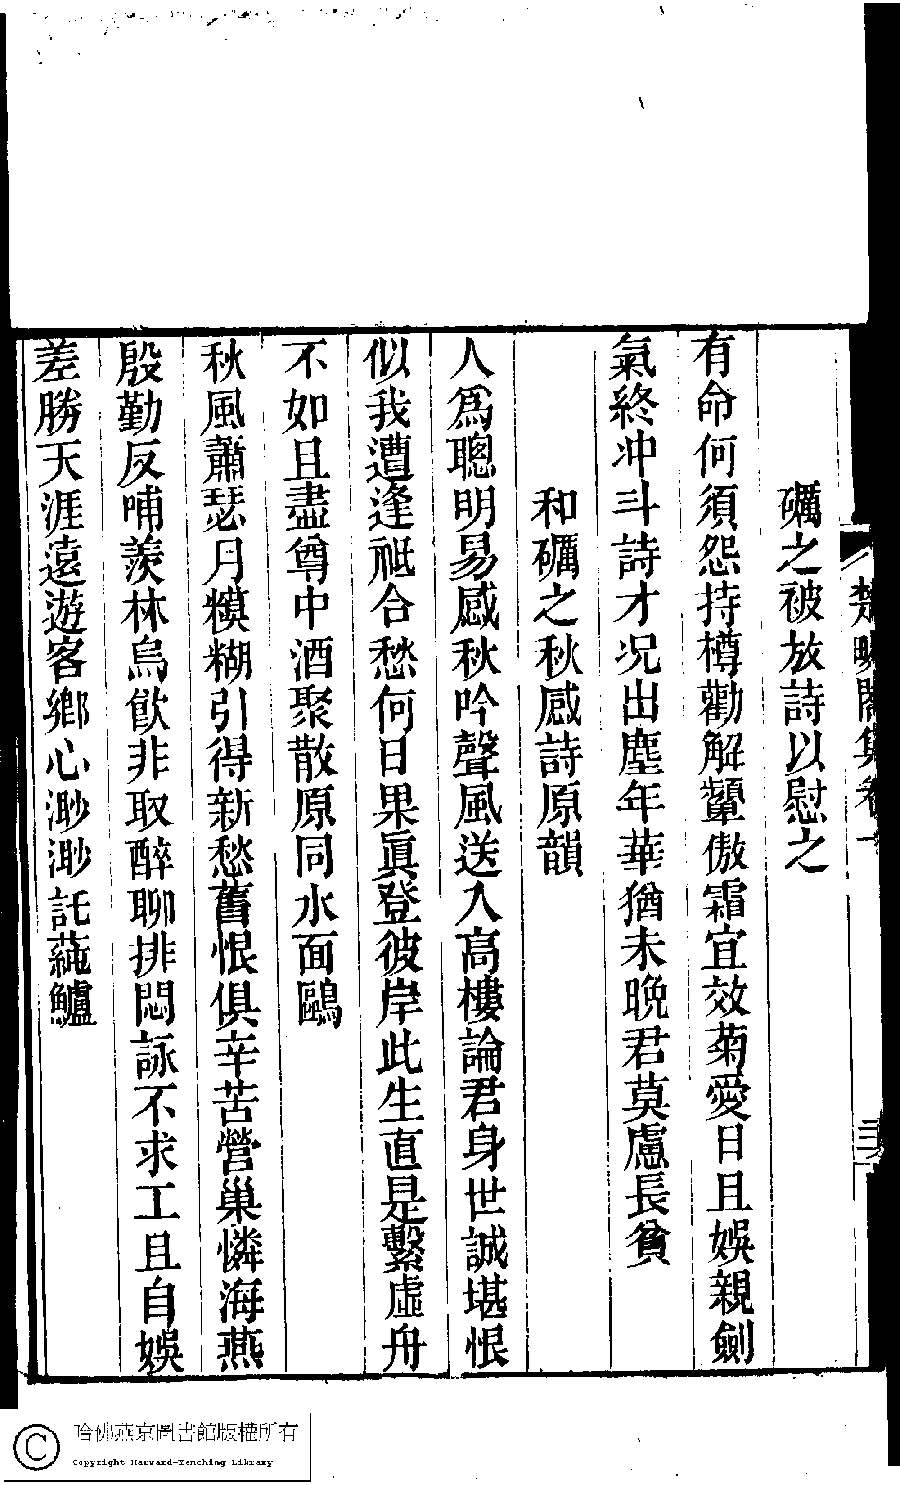 礪之被放詩以慰之
有命何須怨持樽勸解顰傲霜宜效菊愛日且娛親劍
氣終冲斗詩才况出塵年華猶未晚君莫慮長貧
和礪之秋感詩原韻
人爲聰明易感秋吟聲風送入高樓論君身世誠堪恨
似我遭逢祗合愁何日果眞登彼岸此生直是繫虛舟
不如且盡尊中酒聚散原同水面鷗
秋風蕭瑟月糢糊引得新愁舊恨俱辛苦營巢憐海燕
殷勤反哺羨林烏飮非取醉聊排悶詠不求工且自娛
差勝天涯遠遊客鄉心渺渺託蒓鱸
哈佛燕京圖書館版權所有
Copyright Harvard-Yenching Library